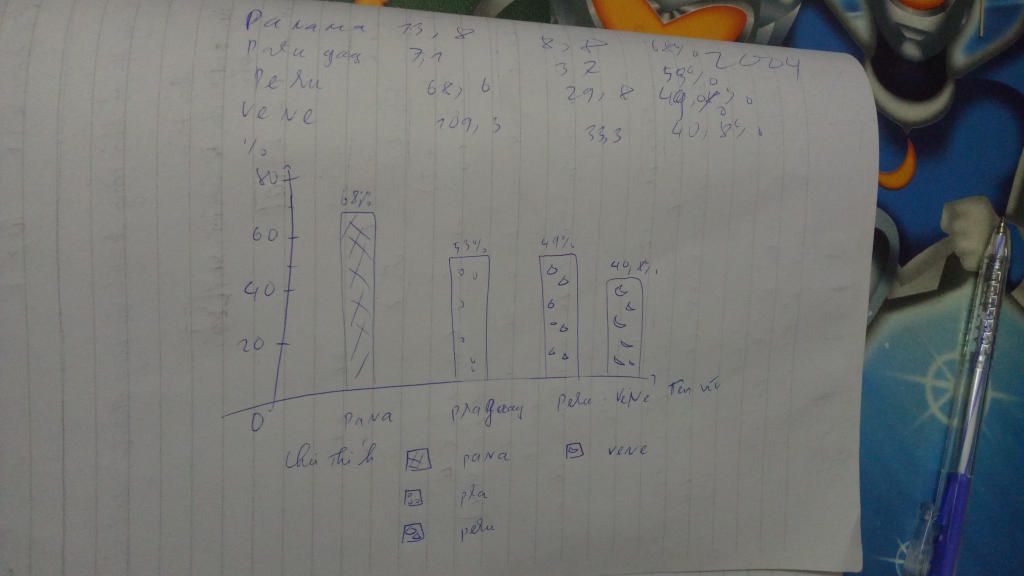 Panama 13,8 8,8 68% 2004
7,1 3 2 53%
Peru 68,6 29,8 49%
VeNe 109,3 33,3 40,8%
%
80
68%
60
53% 49%
40,8%
40
20
0
PaNa Peru VeNe Tên
Chú Thích PaNa VeNe
pla
peru